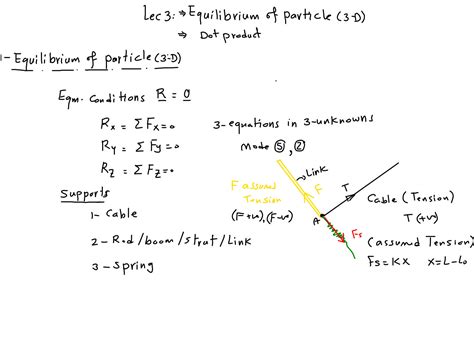 Lec 3: ⇒ Equilibrium of particle (3-D)
⇒ Dot product
1- Equilibrium of particle (3-D)
Eqm. conditions R = 0
Rx = ΣFx=0 3-equations in 3-unknowns
Ry = ΣFy=0 Mode ⑤, ②
Rz = ΣFz=0
Supports
1- Cable
2- Rod/boom/strut/Link
3- Spring
Link
F assumd
Tension
(F +ve), (F -ve)
F
T
A
Fs
Cable (Tension)
T (+ve)
(assumd Tension)
Fs = KX X = L-Lo